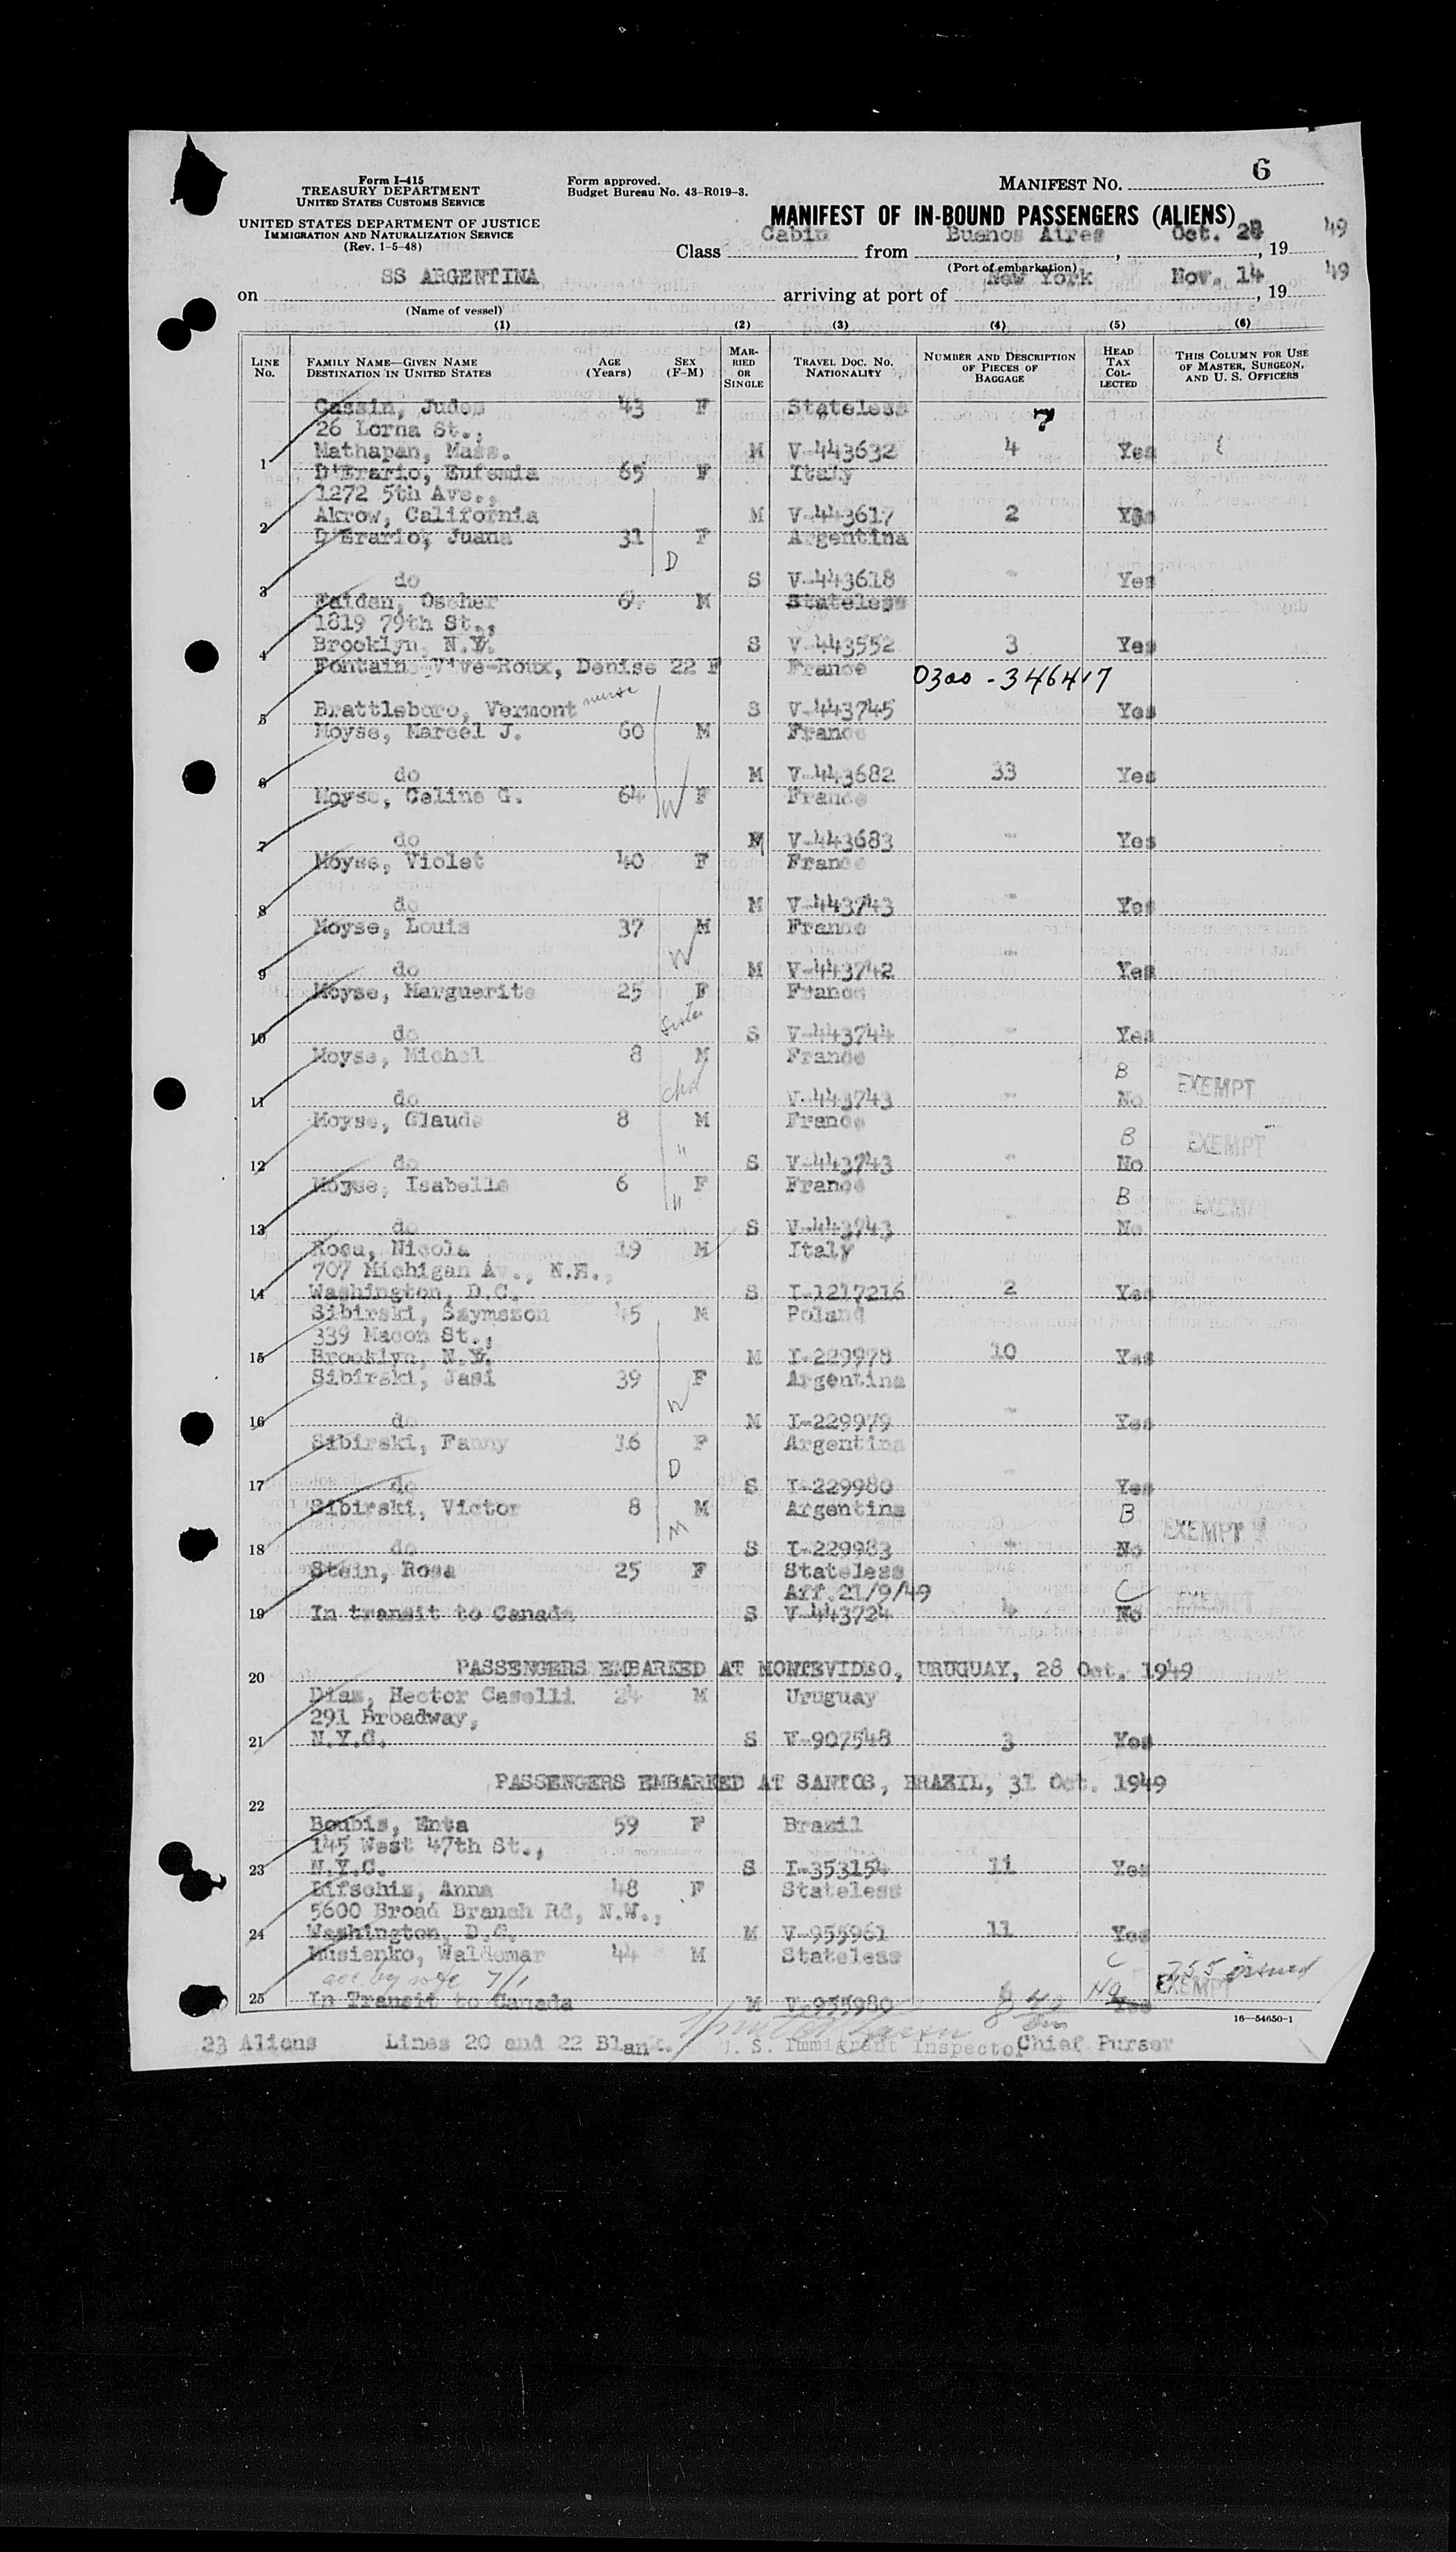 Form I-415
TREASURY DEPARTMENT
UNITED STATES CUSTOMS SERVICE
UNITED STATES DEPARTMENT OF JUSTICE
IMMIGRATION AND NATURALIZATION SERVICE
(Rev. 1-5-48)
Form approved.
Budget Bureau No. 43-R019-3.
MANIFEST NO. 6
MANIFEST OF IN-BOUND PASSENGERS (ALIENS)
Class Cabin from Buenos Aires, Oct. 28, 19 49
(Port of embarkation)
on SS ARGENTINA arriving at port of New York Nov. 14, 19 49
(Name of vessel)
(1) (2) (3) (4) (5) (6)
LINE No. FAMILY NAME—GIVEN NAME DESTINATION IN UNITED STATES AGE (Years) SEX (F-M) MARRIED OR SINGLE TRAVEL DOC. NO. NATIONALITY NUMBER AND DESCRIPTION OF PIECES OF BAGGAGE HEAD TAX COLLECTED THIS COLUMN FOR USE OF MASTER, SURGEON, AND U. S. OFFICERS
Cassin, Judes 43 F Stateless
26 Lorna St.,
1 Mathapan, Mass. M V-443632 4 Yes
D'Erario, Eufemia 65 F Italy
1272 5th Ave.,
2 Akrow, California M V-443617 2 Yes
D'Erario, Juana 31 F Argentina
D
3 do S V-443618 " Yes
Faiden, Oscher 64 M Stateless
1819 79th St.,
4 Brooklyn, N.Y. S V-443552 3 Yes
Fontain Vive-Roux, Denise 22 F France 0300 - 346417
5 Brattleboro, Vermont nurse S V-443745 Yes
Moyse, Marcel J. 60 M France
6 do M V-443682 33 Yes
Moyse, Celine G. 64 W F France
7 do M V-443683 " Yes
Moyse, Violet 40 F France
8 do M V-443743 " Yes
Moyse, Louis 37 M France
W
9 do M V-443742 " Yes
Moyse, Marguerite 25 F France
sister
10 do S V-443744 " Yes
Moyse, Michel 8 M France
B EXEMPT
11 do chd V-443743 " No
Moyse, Claude 8 M France
B EXEMPT
12 do " S V-443743 " No
Moyse, Isabelle 6 F France
" B EXEMPT
13 do S V-443743 " No
Rosu, Nicola 19 M Italy
707 Michigan Av., N.E.,
14 Washington, D.C. S I-1217216 2 Yes
Sibirski, Szymszon 45 M Poland
339 Macon St.,
15 Brooklyn, N.Y. M I-229978 10 Yes
Sibirski, Jasi 39 F Argentina
W
16 do M I-229979 " Yes
Sibirski, Fanny 16 F Argentina
D
17 do S I-229980 " Yes
Sibirski, Victor 8 M Argentina B
EXEMPT
18 do S I-229983 " No
Stein, Rosa 25 F Stateless
Aff.21/9/49 C EXEMPT
19 In transit to Canada S V-443724 4 No
20 PASSENGERS EMBARKED AT MONTEVIDEO, URUGUAY, 28 Oct. 1949
Diaz, Hector Caselli 24 M Uruguay
291 Broadway,
21 N.Y.C. S V-907548 3 Yes
PASSENGERS EMBARKED AT SANTOS, BRAZIL, 31 Oct. 1949
22
Boubis, Enta 59 F Brazil
145 West 47th St.,
23 N.Y.C. S I-353154 11 Yes
Lifschiz, Anna 48 F Stateless
5600 Broad Branch Rd, N.W.,
24 Washington, D.C. M V-955961 11 Yes
Musienko, Waldemar 44 M Stateless
C
EXEMPT
25 In Transit to Canada M V-955980 8 No Yes
16—54650-1
23 Aliens Lines 20 and 22 Blank. U. S. Immigrant Inspector Chief Purser